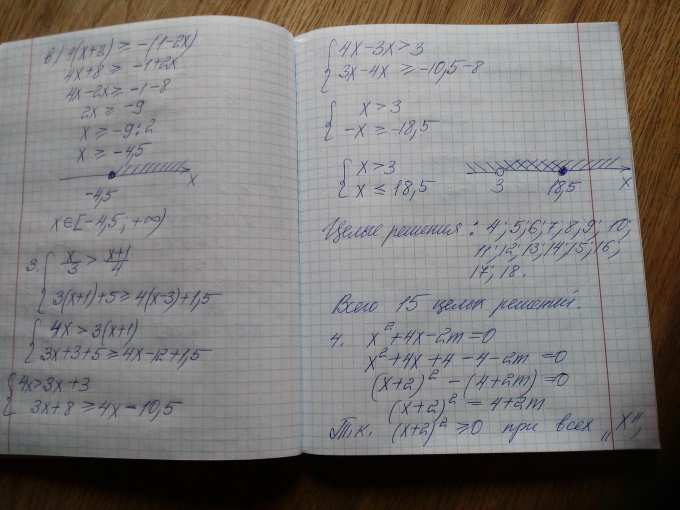 в) 4(x+2) ≥ -(1-2x)
4x+8 ≥ -1+2x
4x-2x ≥ -1-8
2x ≥ -9
x ≥ -9:2
x ≥ -4,5
-4,5 x
x∈[-4,5, +∞)
3. { x/3 > x+1/4
3(x+1)+5 ≥ 4(x-3)+1,5
{ 4x > 3(x+1)
3x+3+5 ≥ 4x-12+1,5
{ 4x > 3x+3
3x+8 ≥ 4x-10,5
{ 4x-3x > 3
3x-4x ≥ -10,5-8
{ x > 3
-x ≥ -18,5
{ x > 3
x ≤ 18,5
3 18,5 x
Целые решения: 4; 5; 6; 7; 8; 9; 10;
11; 12; 13; 14; 15; 16;
17; 18.
Всего 15 целых решений.
4. x²+4x-2m=0
x²+4x+4-4-2m=0
(x+2)²-(4+2m)=0
(x+2)²=4+2m
Т.к. (x+2)² ≥ 0 при всех „x",